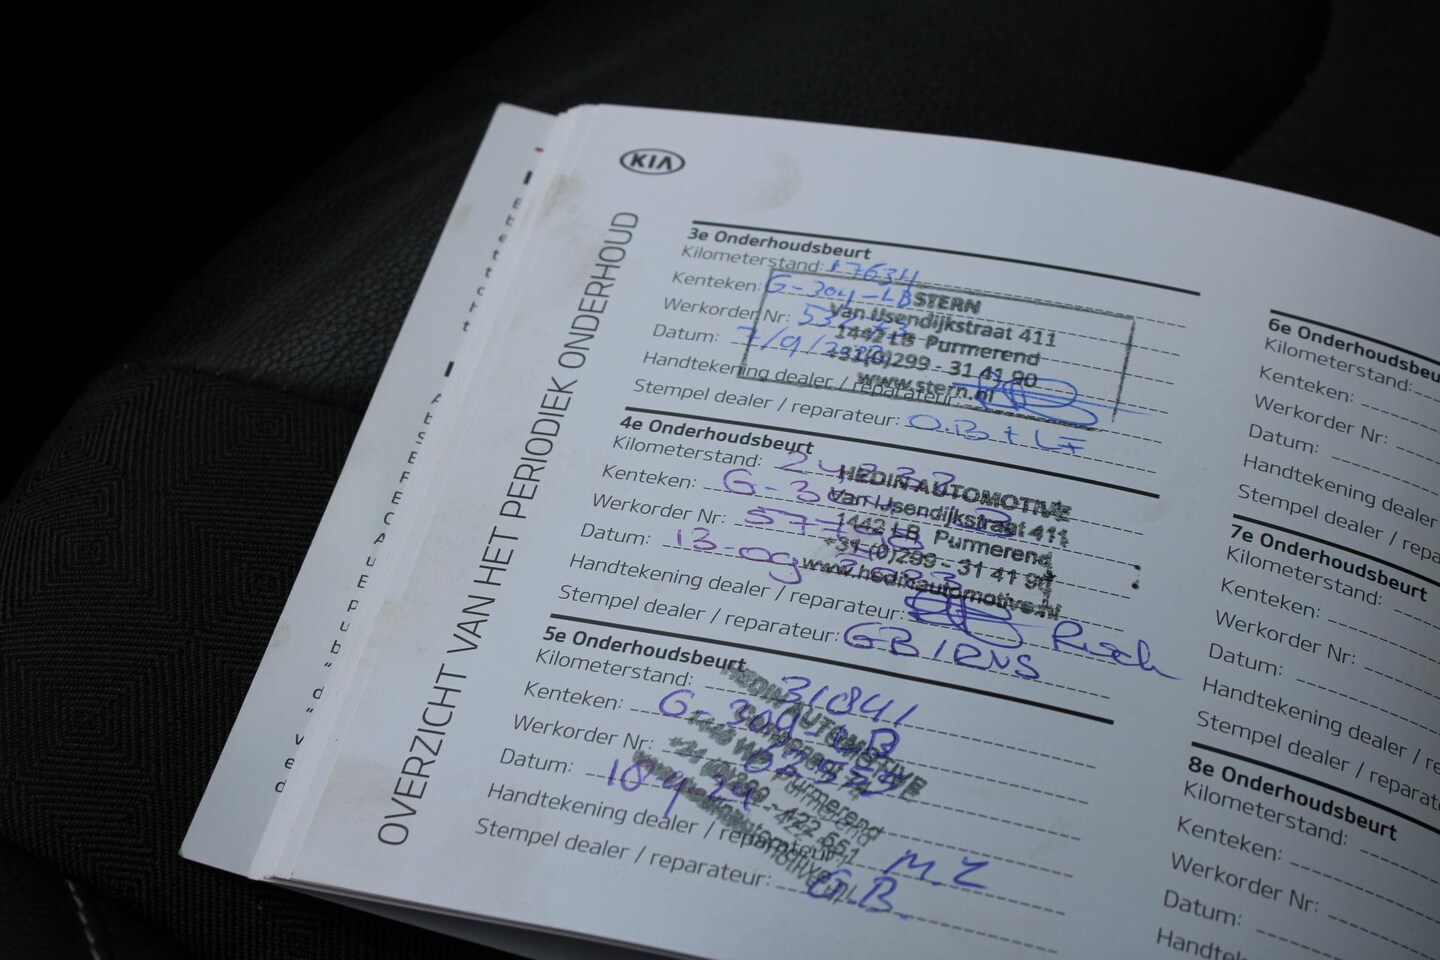 KIA
OVERZICHT VAN HET PERIODIEK ONDERHOUD
3e Onderhoudsbeurt
Kilometerstand: 17634
Kenteken: G-304-LB
STERN
Van IJsendijkstraat 411
Werkorder Nr:
1442 LB Purmerend
Datum: 7/9/
+31(0)299 - 31 41 90
www.stern.nl
Handtekening dealer / reparateur:
Stempel dealer / reparateur: O.B + LF
4e Onderhoudsbeurt
Kilometerstand:
HEDIN AUTOMOTIVE
Kenteken: G-30
Van IJsendijkstraat 411
Werkorder Nr:
1442 LB Purmerend
Datum: 13-09
+31 (0)299 - 31 41 90
www.hedinautomotive.nl
Handtekening dealer / reparateur:
Stempel dealer / reparateur: GB/RNS
5e Onderhoudsbeurt
Kilometerstand: 31841
HEDIN AUTOMOTIVE
Kenteken: G-304-LB
Werkorder Nr:
Purmerend
Datum: 18 9 24
Handtekening dealer / reparateur: MZ
Stempel dealer / reparateur: G.B.
6e Onderhoudsbeu
Kilometerstand:
Kenteken:
Werkorder Nr:
Datum:
Handtekening dealer
Stempel dealer / repa
7e Onderhoudsbeurt
Kilometerstand:
Kenteken:
Werkorder Nr:
Datum:
Handtekening dealer / r
Stempel dealer / repara
8e Onderhoudsbeurt
Kilometerstand:
Kenteken:
Werkorder Nr:
Datum:
Handtek